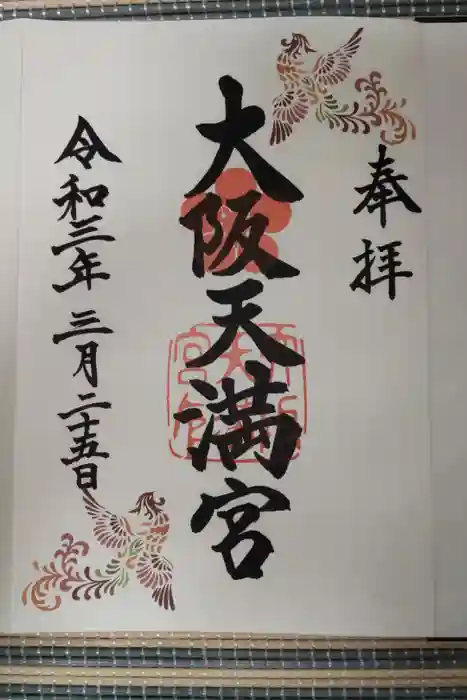 奉拝
大阪天満宮
令和三年三月二十五日